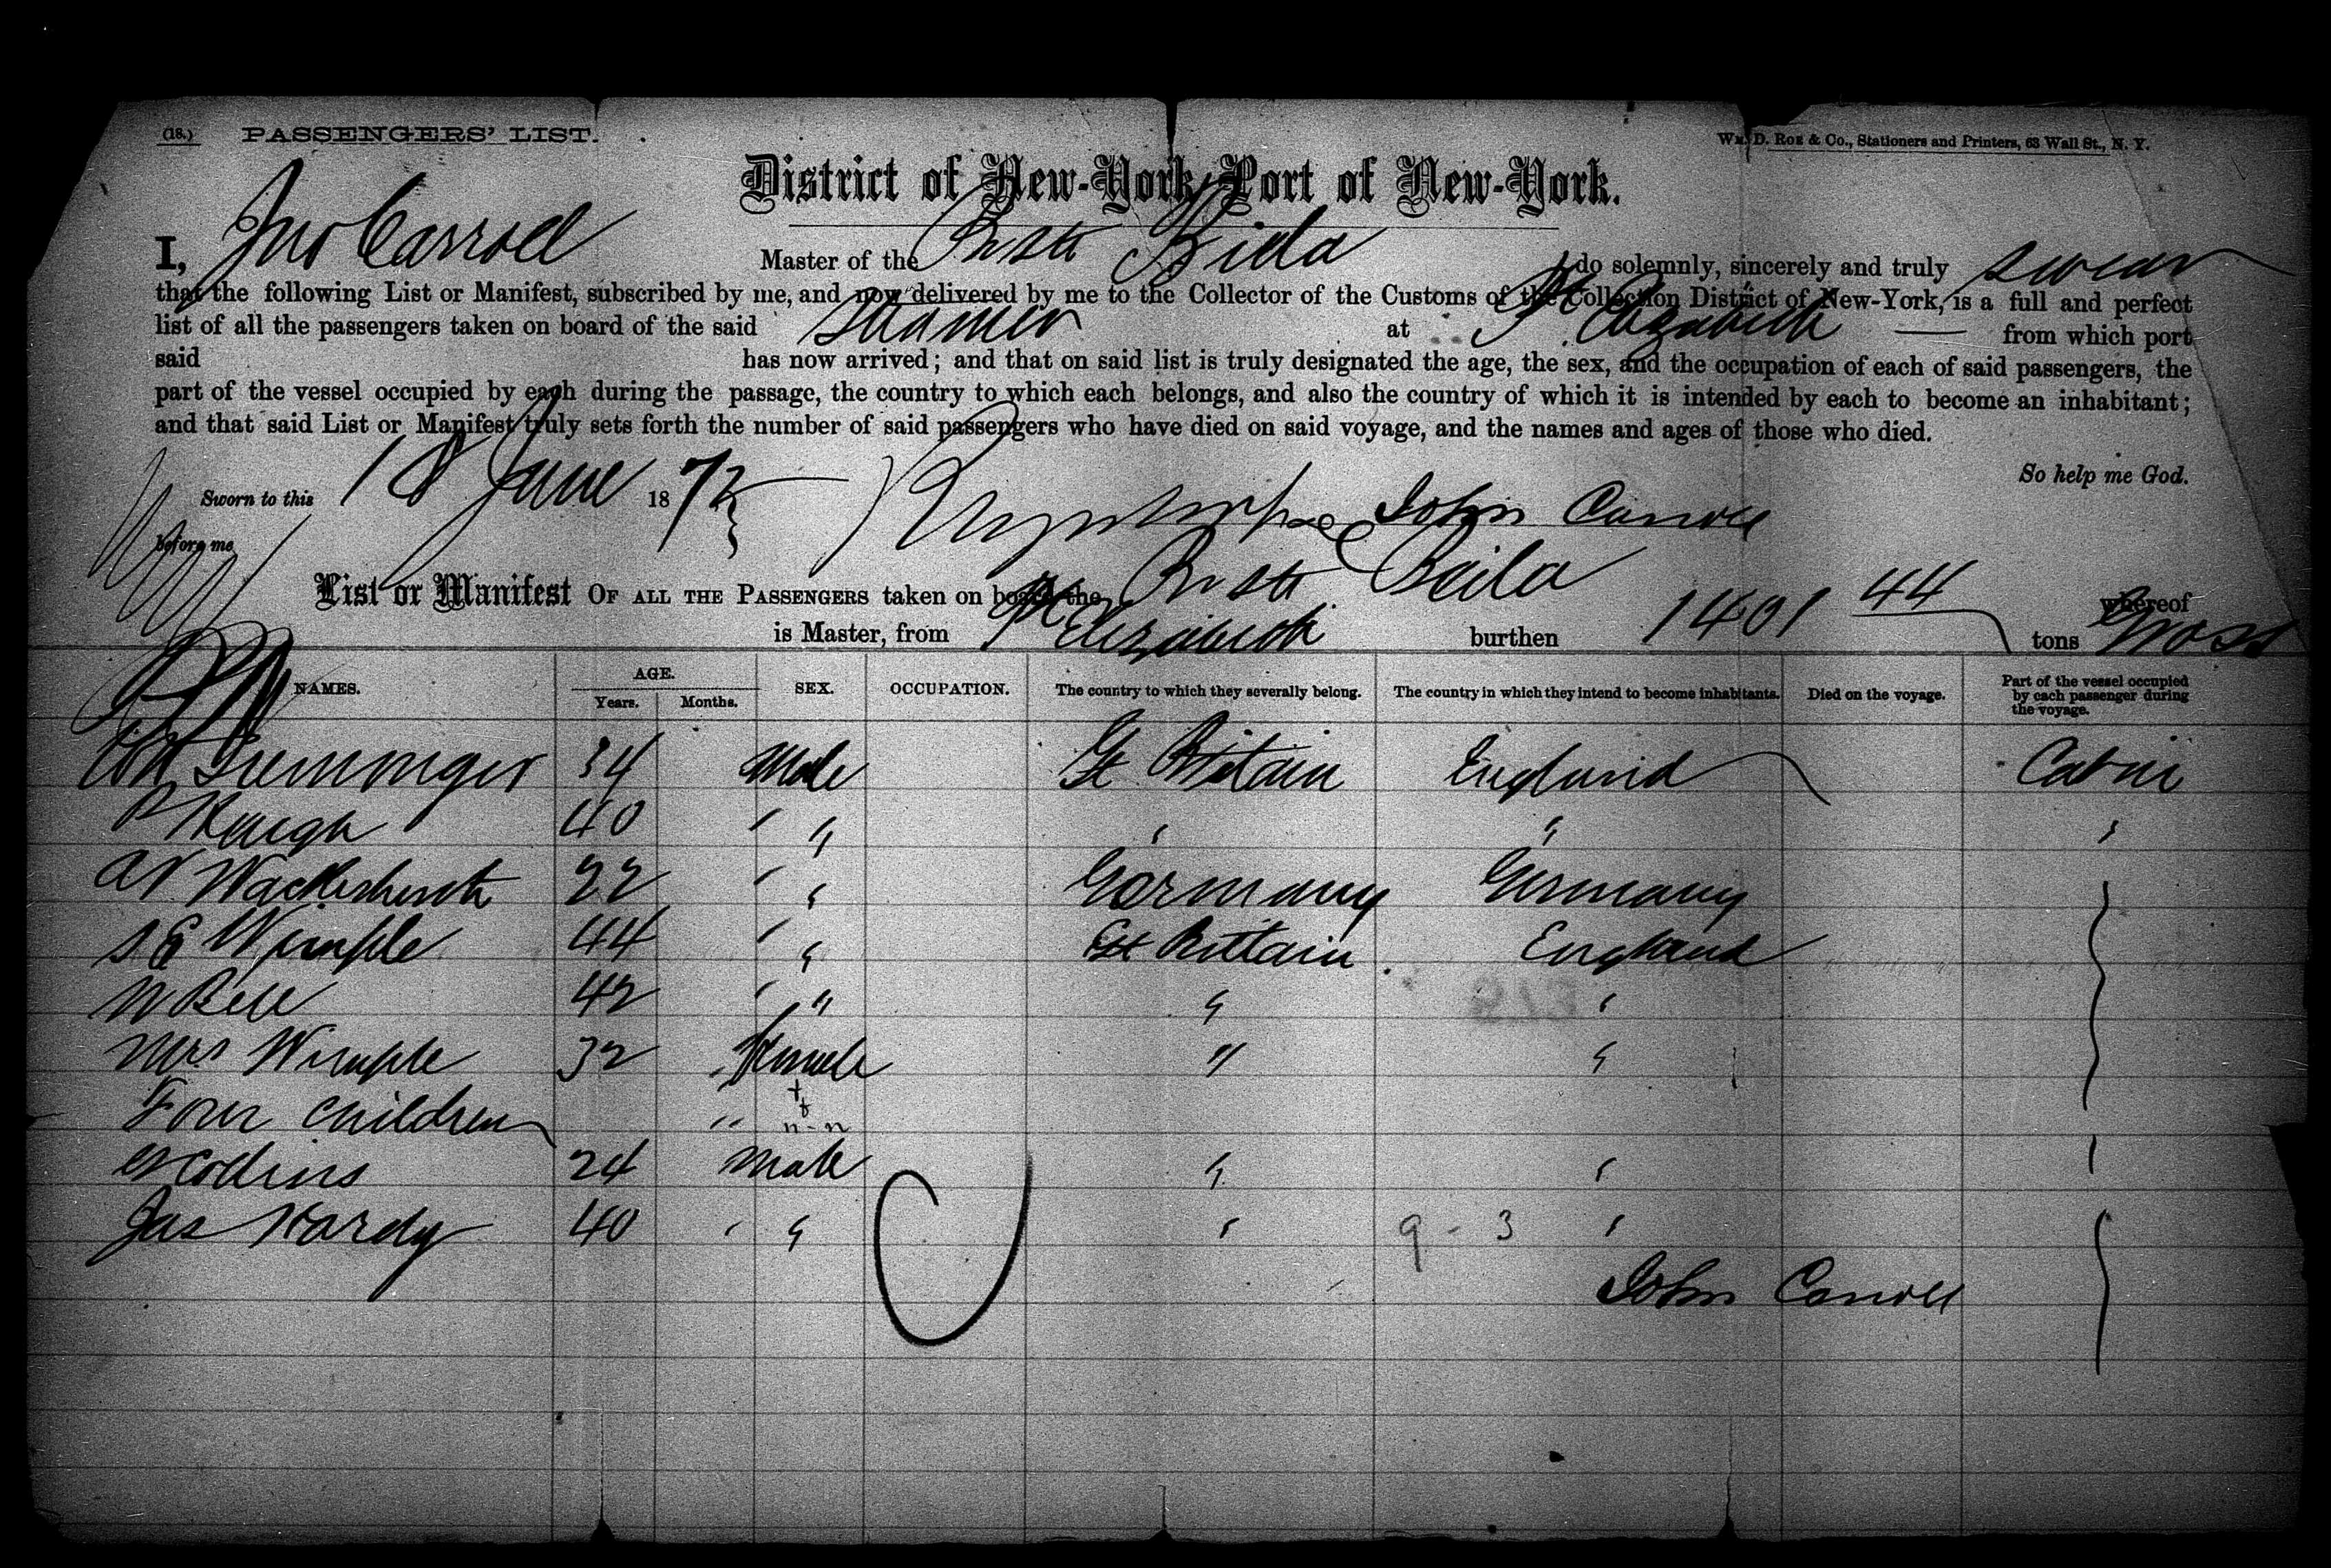 (18.) PASSENGERS' LIST. Wm. D. Roe & Co., Stationers and Printers, 63 Wall St., N. Y.
District of New-York, Port of New-York.
I, Jno Carroll Master of the Br Str Biela do solemnly, sincerely and truly swear
that the following List or Manifest, subscribed by me, and now delivered by me to the Collector of the Customs of the Collection District of New-York, is a full and perfect
list of all the passengers taken on board of the said Steamer at Pt Elizabeth from which port
said has now arrived; and that on said list is truly designated the age, the sex, and the occupation of each of said passengers, the
part of the vessel occupied by each during the passage, the country to which each belongs, and also the country of which it is intended by each to become an inhabitant;
and that said List or Manifest truly sets forth the number of said passengers who have died on said voyage, and the names and ages of those who died.
So help me God.
Sworn to this 18 June 187 John Carroll
before me
List or Manifest OF ALL THE PASSENGERS taken on board the Br Str Biela whereof
is Master, from Pt Elizabeth burthen 1401 44 tons Gross
NAMES. AGE. Years. Months. SEX. OCCUPATION. The country to which they severally belong. The country in which they intend to become inhabitants. Died on the voyage. Part of the vessel occupied by each passenger during the voyage.
34 Male Gt Britain England Cabin
40 " " " " "
22 " " Germany Germany
S E Wimple 44 " " Gt Britain England
W Bell 42 " " " "
Mrs Wimple 32 " Female " "
Four Children " "
Collins 24 Male " "
Jas Hardy 40 " " " 9 - 3 "
John Carroll